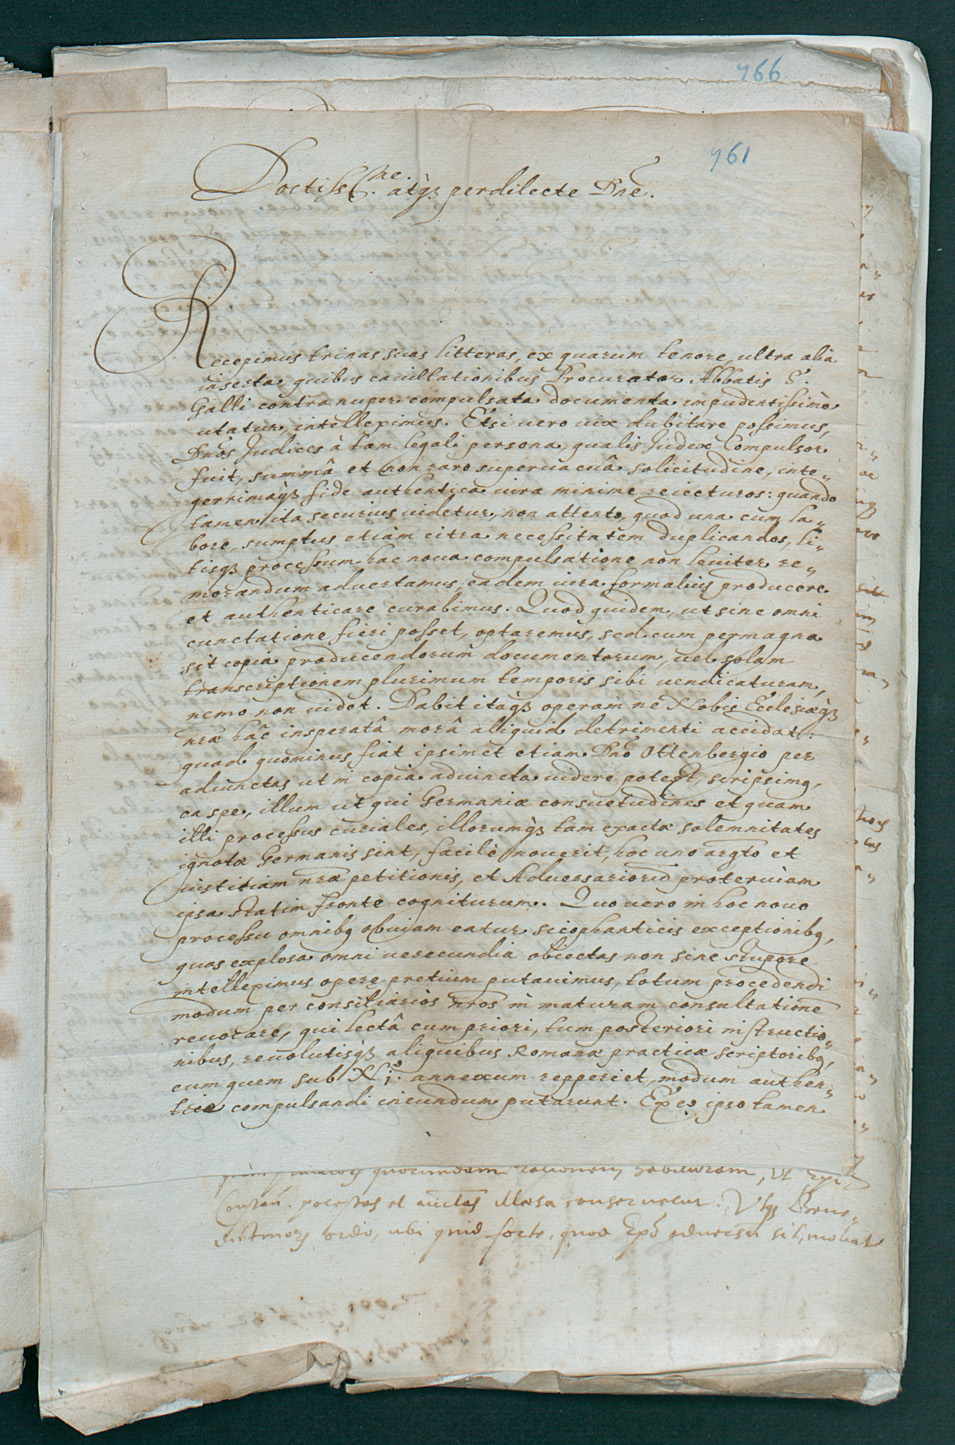 766
761
Doctiss.e atq3 perdilecte Dne.
Recepimus trinas suas litteras, ex quarum tenore, ultra alia
inserta, quibus cavillationibus Procurator Abbatis S.
Galli contra nuper compulsata documenta impudentissime
utatur, intelleximus. Etsi vero vix dubitare possimus,
Dnos Judices à tam legali persona, qualis Judex Compulsor
fuit, summâ et non raro supervacuâ solicitudine, inte„
gerrimaq3 fide authentica iura minime reiecturos: quando
tamen ita securius videtur, non attento, quod una cum la„
bore, sumptus etiam citra necessitatem duplicandos, li„
tisq3 processum hac nova compulsatione non leviter re„
morandum advertamus, eadem iura formalius producere
et authenticare curabimus. Quod quidem, ut sine omni
cunctatione fieri posset, optaremus, sed cum permagna
sit copia producendorum documentorum, vel solam
transcriptionem plurimum temporis sibi vendicaturam,
nemo non videt. Dabit itaq3 operam ne Nobis Ecclesiæq3
nræ hâc insperatâ morâ aliquid detrimenti accidat:
quod quominus fiat ipsimet etiam Dno Ottenbergio per
adiunctas ut in copia advincta videre potest, scripsimus,
ea spe, illum ut qui Germaniæ consuetudines et quam
illi processus curiales, illorumq3 tam exactæ solemnitates
ignotæ Germanis sint, facilè noverit, hoc uno argto et
iustitiam nræ petitionis, et Adversariorum proterviam
ipsa statim fronte cogniturum. Quo vero in hoc novo
processu omnibus obviam eatur sicophanticis exceptionibus,
quas explosa omni verecundia obiectas non sine stupore
intelleximus opere pretium putavimus, totum procedendi
modum per consiliarios nros in maturam consultatione
revocare, qui lectâ cum priori, tum posteriori instructio„
nibus, revolutisq3 aliquibus Romanæ practicæ scriptoribus,
eum quem sub N. 1.° annexum repperiet, modum authen„
tice compulsandi ineundum putarunt. Ex eo ipso tamen
quorundam rationem habituram, ut
Constan. potestas et auctas illæsa conservetur.
ordo, ubi quid forte, quod Epo adversum sit,